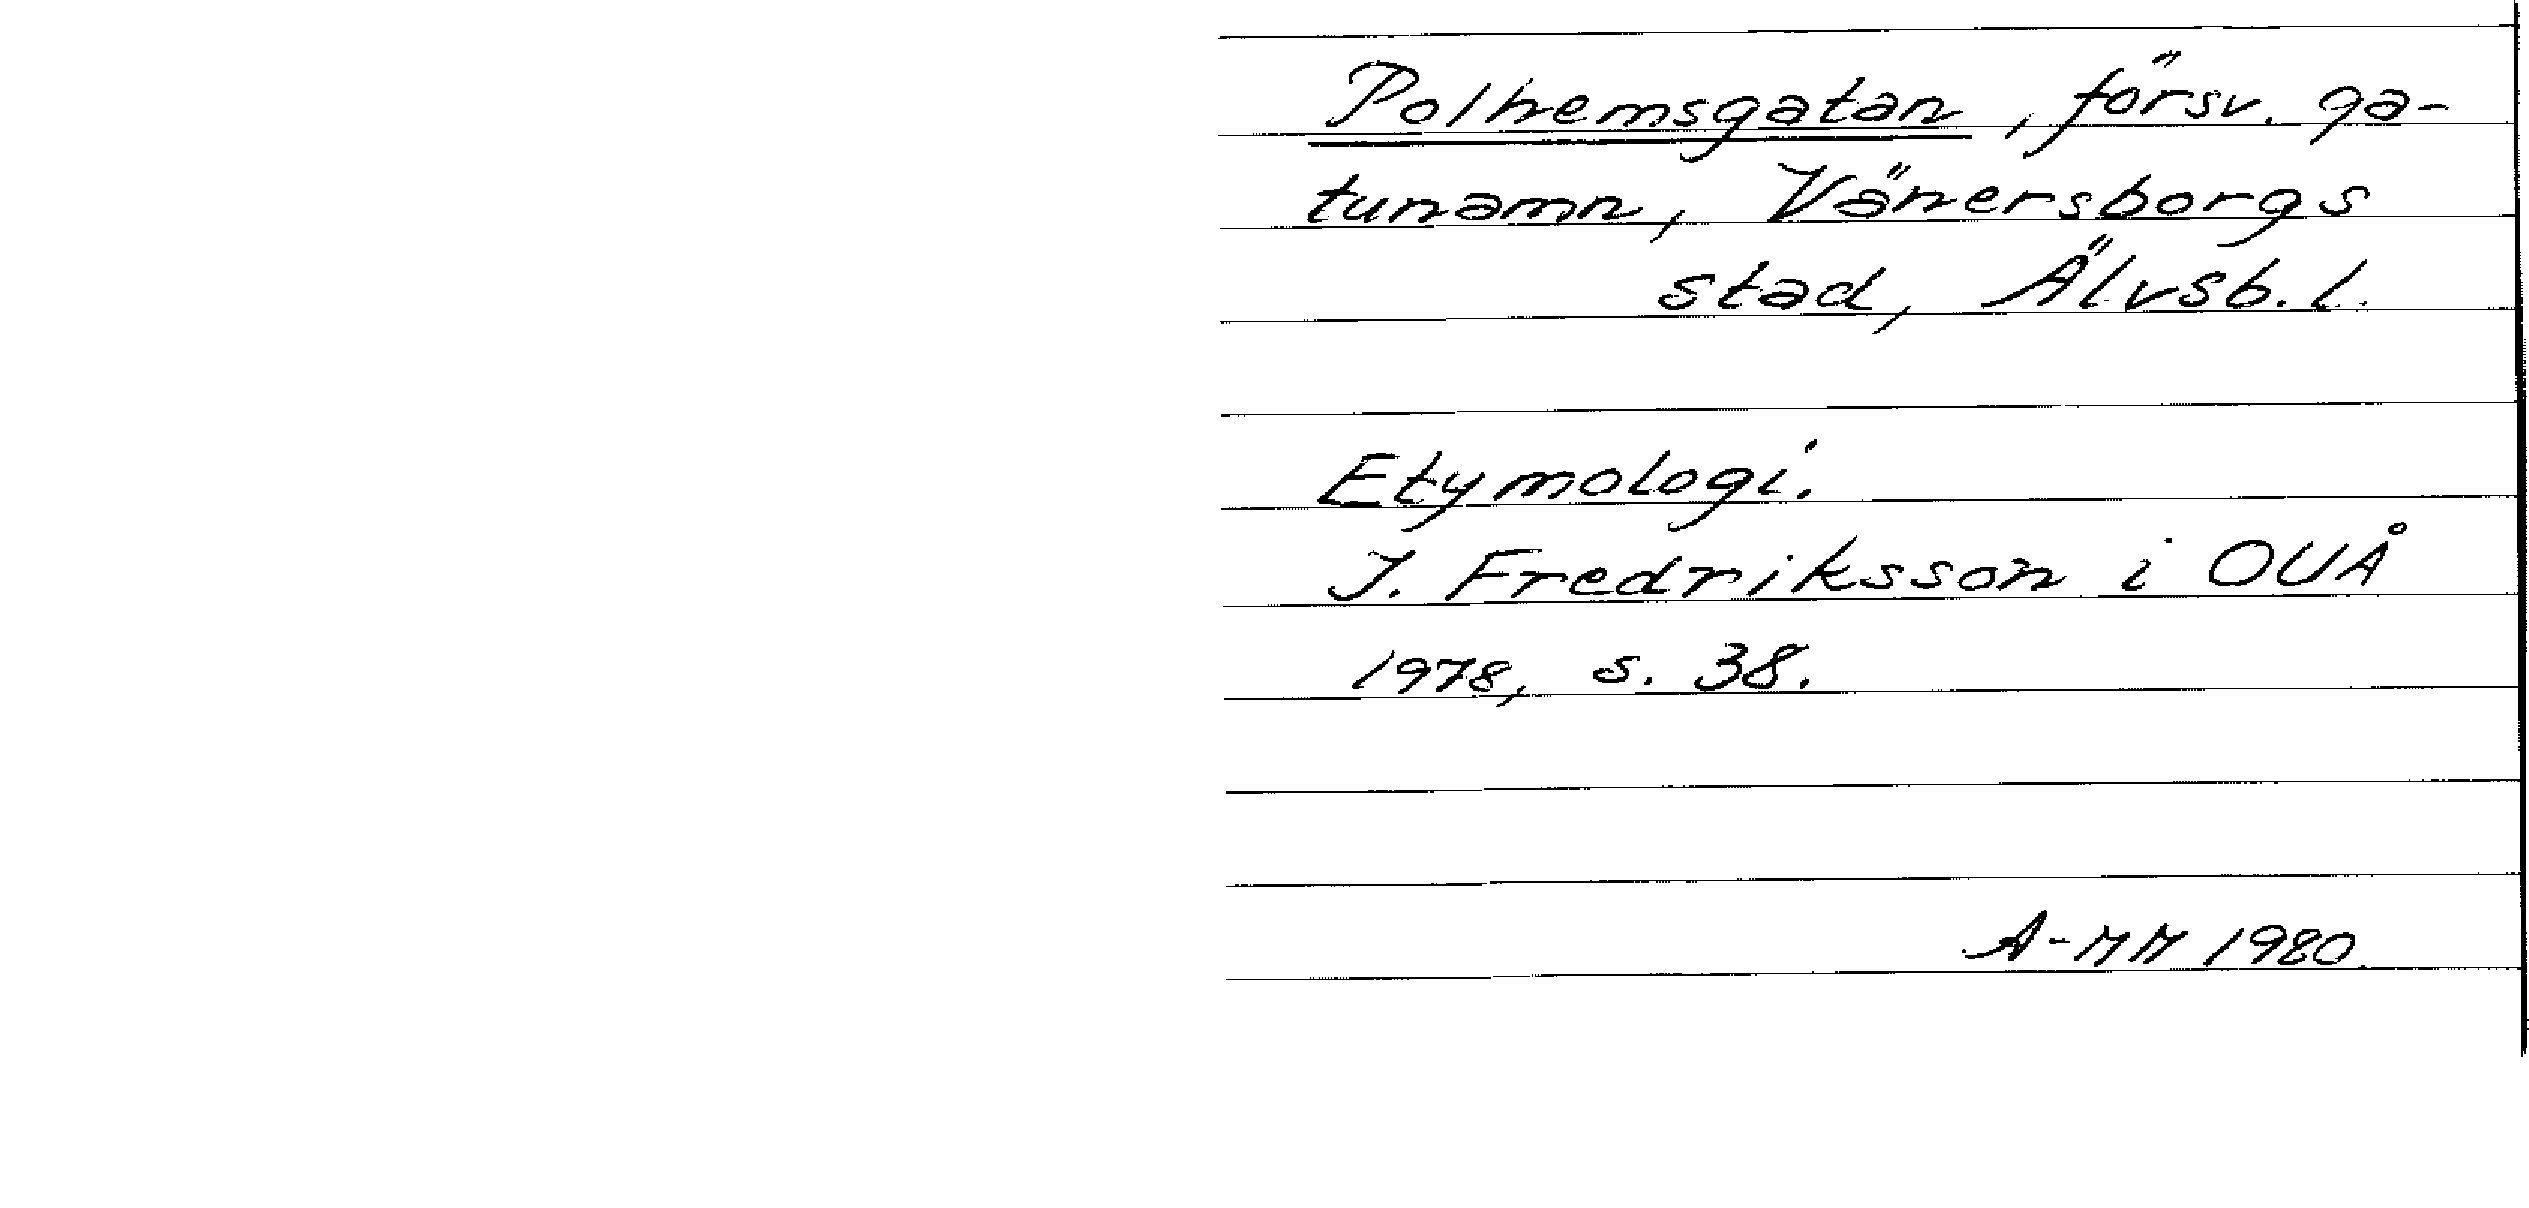 Polhemsgatan, försv. ga-
tunamn, Vänersborgs
stad, Älvsb. l.
Etymologi.
I. Fredriksson i OUÅ
1978, s. 38.
A-MM 1980.